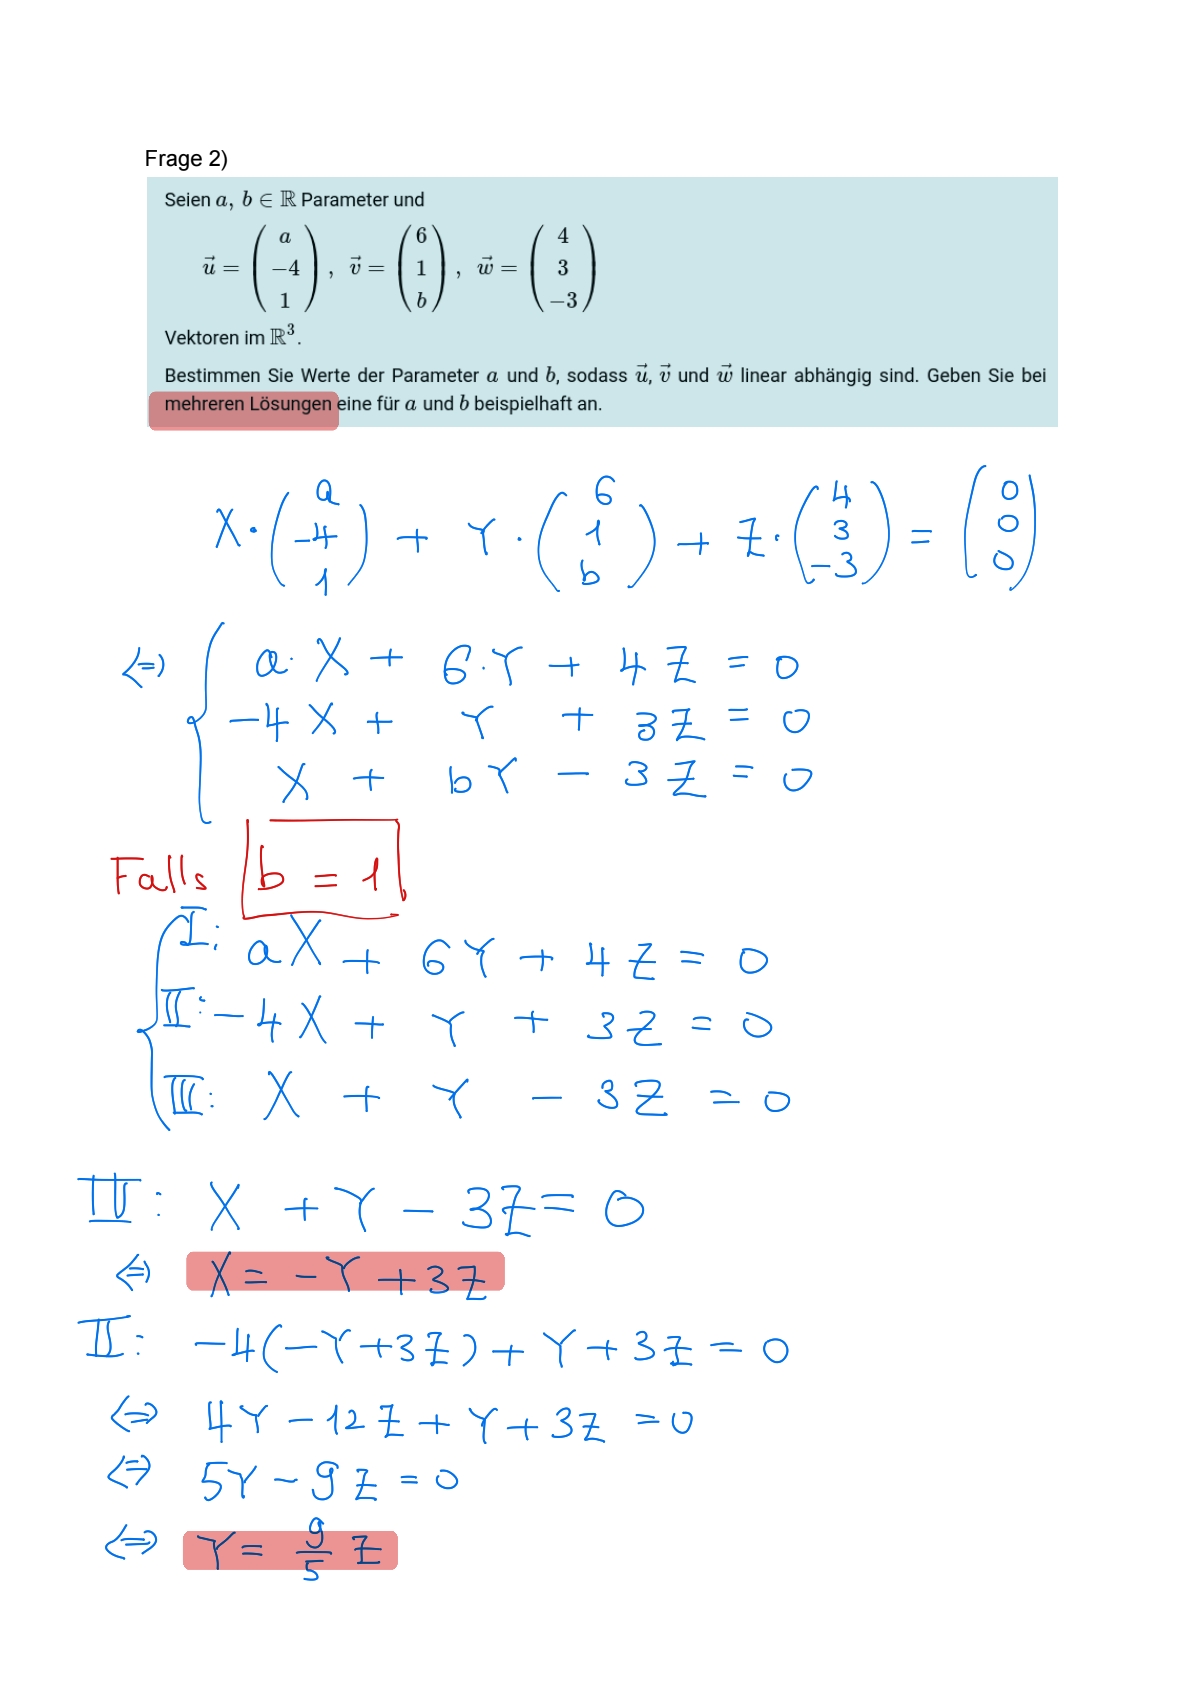 Frage 2)
Seien a, b ∈ ℝ Parameter und
u⃗ = (a −4 1), v⃗ = (6 1 b), w⃗ = (4 3 −3)
Vektoren im ℝ³.
Bestimmen Sie Werte der Parameter a und b, sodass u⃗, v⃗ und w⃗ linear abhängig sind. Geben Sie bei
mehreren Lösungen eine für a und b beispielhaft an.
X · (a −4 1) + Y · (6 1 b) + Z · (4 3 −3) = (0 0 0)
⇔ { a · X + 6 · Y + 4 Z = 0
−4 X + Y + 3 Z = 0
X + b Y − 3 Z = 0
Falls b = 1
I: aX + 6Y + 4Z = 0
II: −4X + Y + 3Z = 0
III: X + Y − 3Z = 0
III: X + Y − 3Z = 0
⇔ X = −Y + 3Z
II: −4(−Y + 3Z) + Y + 3Z = 0
⇔ 4Y − 12Z + Y + 3Z = 0
⇔ 5Y − 9Z = 0
⇔ Y = 9/5 Z